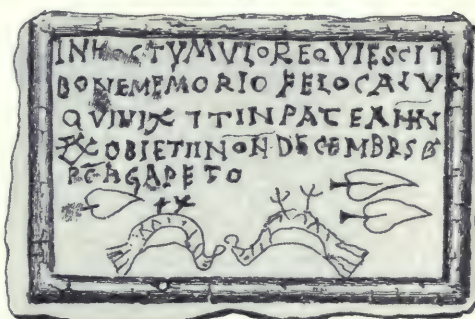 INHOCTVMVLOREQVIESCIT
BONEMEMORIO FELOCALVS
QVIVIXITINPACEANN
OBIETIINONDECEMBRS
AGAPETO